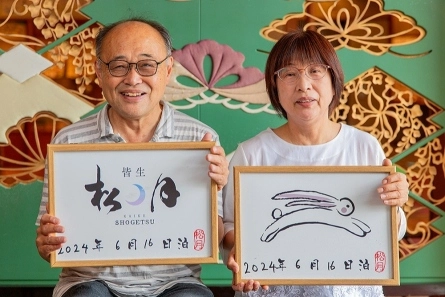 皆生
松月
KAIKE
SHOGETSU
2024年 6月 16日 泊
松月
2024年 6月 16日 泊
松月